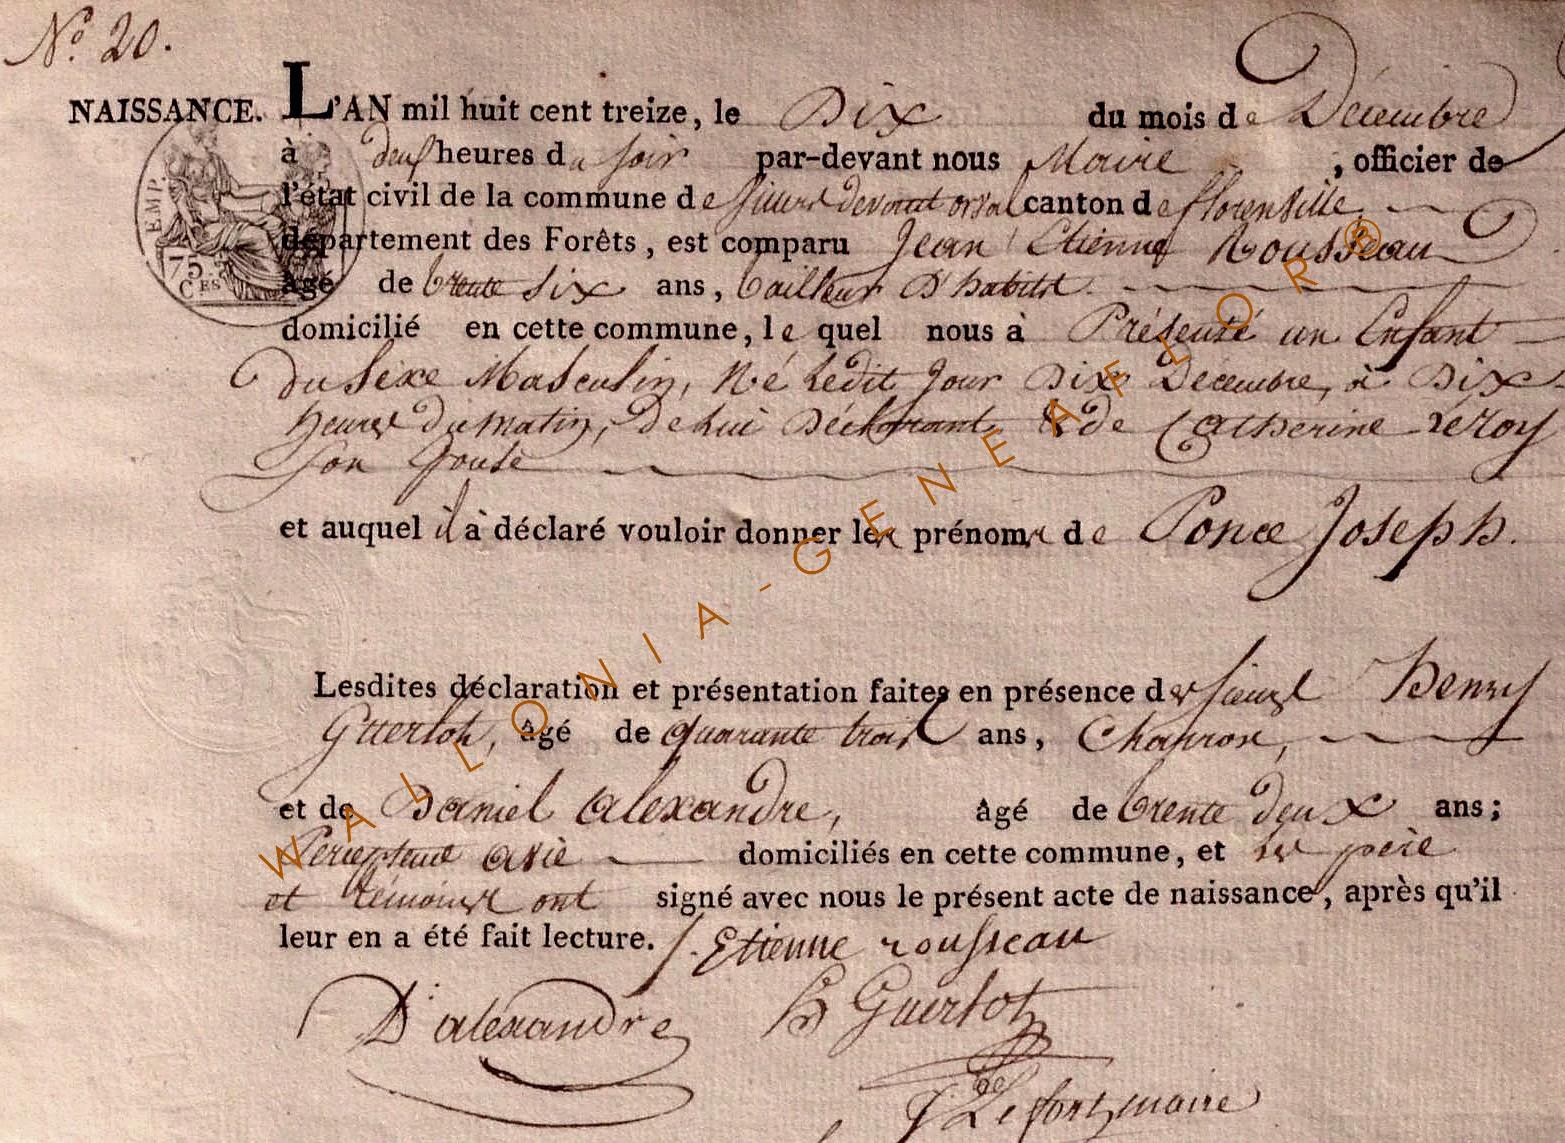 N.º 20.
NAISSANCE. L'AN mil huit cent treize, le Dix du mois de Décembre
à deux heures du soir par-devant nous Maire, officier de
l'état civil de la commune de devant orval canton de florenville
département des Forêts, est comparu Jean Etienne Rousseau
âgé de trente Six ans, tailleur D'habits
domicilié en cette commune, le quel nous à Présenté un Enfant
Du Sexe Masculin, Né Ledit Jour Dix Décembre, à Dix
heures du matin, De Lui Déclarant & de Catherine Leroy
Son Epouse
et auquel il à déclaré vouloir donner les prénoms de Ponce Joseph.
Lesdites déclaration et présentation faites en présence des sieurs Henry
âgé de quarante trois ans, Charron,
et de Daniel Alexandre, âgé de trente deux ans;
domiciliés en cette commune, et les père
et témoins ont signé avec nous le présent acte de naissance, après qu'il
leur en a été fait lecture. J. Etienne rousseau
D alexandre H Guerlot
Lefort, maire
EMP.
75 CES
WALLONIA-GENEAFLOR®